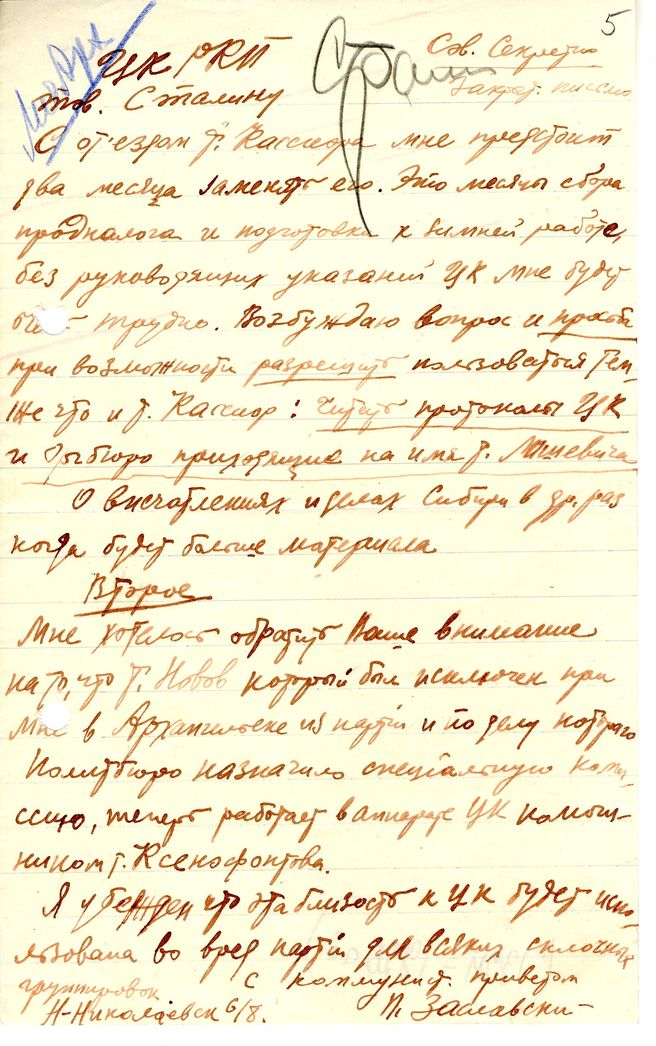 5
ЦК РКП
Сов. Секретно
тов. Сталину
Закрыт. письмо
С от'ездом т. Кассиора мне предстоит
два месяца заменять его. Это месяцы сбора
продналога и подготовка к зимней работе,
без руководящих указаний ЦК мне будет
трудно. Возбуждаю вопрос и просьба
при возможности разрешить пользоваться тем-
же что и т. Кассиор: читать протоколы ЦК
и Оргбюро приходящие на имя т.
О впечатлениях и делах Сибири в др. раз
когда будет больше материала
Второе
Мне хотелось обратить Ваше внимание
на то, что т. Новов который был исключен при
мне в Архангельске из партии и по делу которого
Политбюро назначило специальную коми-
ссию, теперь работает в аппарате ЦК помощ-
ником т. Ксенофонтова.
Я убежден что эта близость к ЦК будет испо-
льзована во вред партии для всяких склочных
группировок
с коммунист. приветом
Н-Николаевск 6/8.
П. Заславский